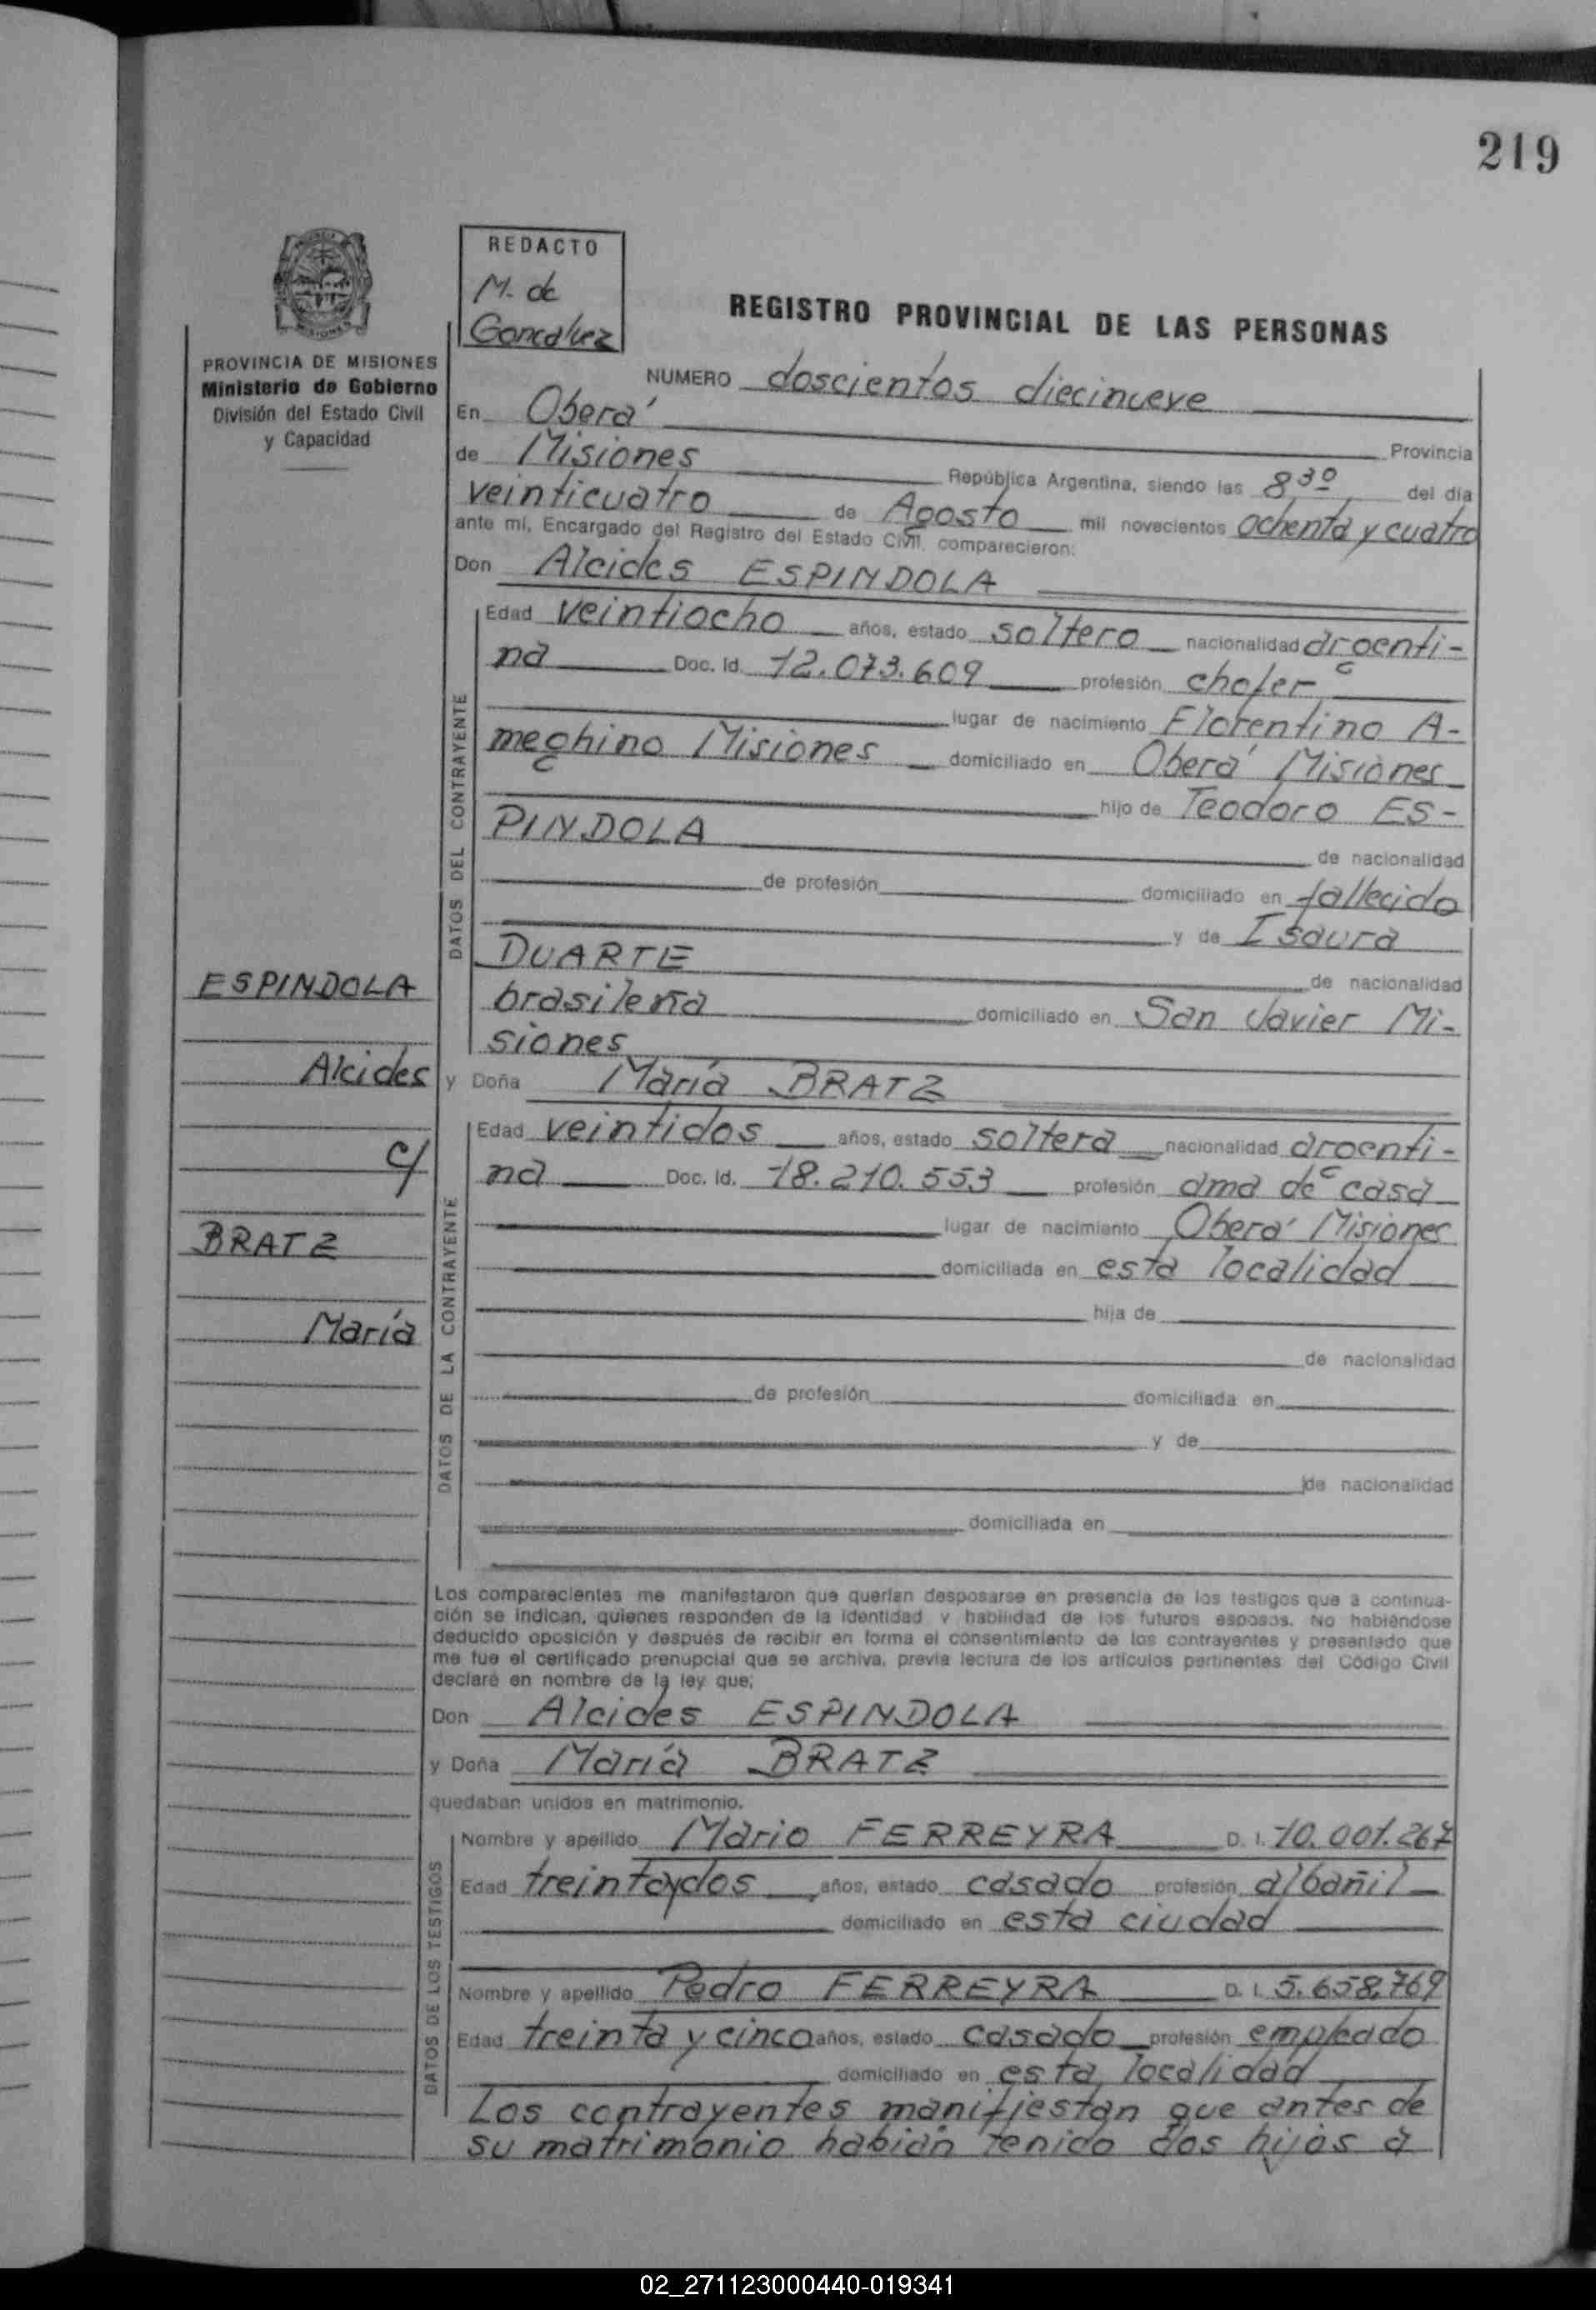 219
REDACTO
M. de
Goncalvez
PROVINCIA DE MISIONES
Ministerio de Gobierno
División del Estado Civil
y Capacidad
REGISTRO PROVINCIAL DE LAS PERSONAS
NUMERO doscientos diecinueve
En Oberá
Provincia
de Misiones República Argentina, siendo las 8³⁰ del día
veinticuatro de Agosto mil novecientos ochenta y cuatro
ante mí, Encargado del Registro del Estado Civil, comparecieron:
Don Alcides ESPINDOLA
DATOS DEL CONTRAYENTE
Edad veintiocho años, estado soltero nacionalidad argenti-
na Doc. Id. 12.073.609 profesión chofer
lugar de nacimiento Florentino A-
meghino Misiones domiciliado en Oberá Misiones
hijo de Teodoro ES-
PINDOLA de nacionalidad
de profesión domiciliado en fallecido
y de Isaura
DUARTE de nacionalidad
brasileña domiciliado en San Javier Mi-
siones
y Doña María BRATZ
DATOS DE LA CONTRAYENTE
Edad veintidos años, estado soltera nacionalidad argenti-
na Doc. Id. 18.210.553 profesión ama de casa
lugar de nacimiento Oberá Misiones
domiciliada en esta localidad
hija de
de nacionalidad
de profesión domiciliada en
y de
de nacionalidad
domiciliada en
ESPINDOLA
Alcides
c/
BRATZ
María
Los comparecientes me manifestaron que querían desposarse en presencia de los testigos que a continua-
ción se indican, quienes responden de la identidad y habilidad de los futuros esposos. No habiéndose
deducido oposición y después de recibir en forma el consentimiento de los contrayentes y presentado que
me fue el certificado prenupcial que se archiva, previa lectura de los artículos pertinentes del Código Civil
declaré en nombre de la ley que;
Don Alcides ESPINDOLA
y Doña María BRATZ
quedaban unidos en matrimonio.
DATOS DE LOS TESTIGOS
Nombre y apellido Mario FERREYRA D. I. 10.001.267
Edad treintaydos años, estado casado profesión albañil
domiciliado en esta ciudad
Nombre y apellido Pedro FERREYRA D. I. 5.658.769
Edad treinta y cinco años, estado casado profesión empleado
domiciliado en esta localidad
Los contrayentes manifiestan que antes de
su matrimonio habían tenido dos hijos a
02_271123000440-019341